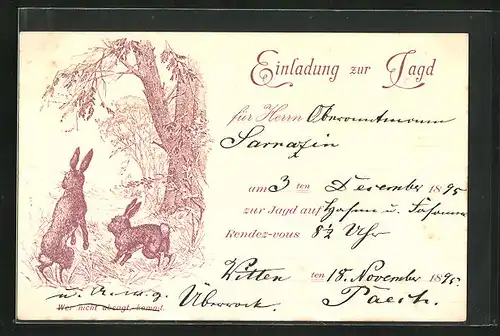 Einladung zur Jagd
für Herrn Oberamtmann
Sarrazin
am 3 ten December 1895
zur Jagd auf Hasen u. Fasanen
Rendez-vous 8½ Uhr
Witten ten 18. November 1895.
u. A. w. g. Überrock.
Wer nicht absagt, kommt.